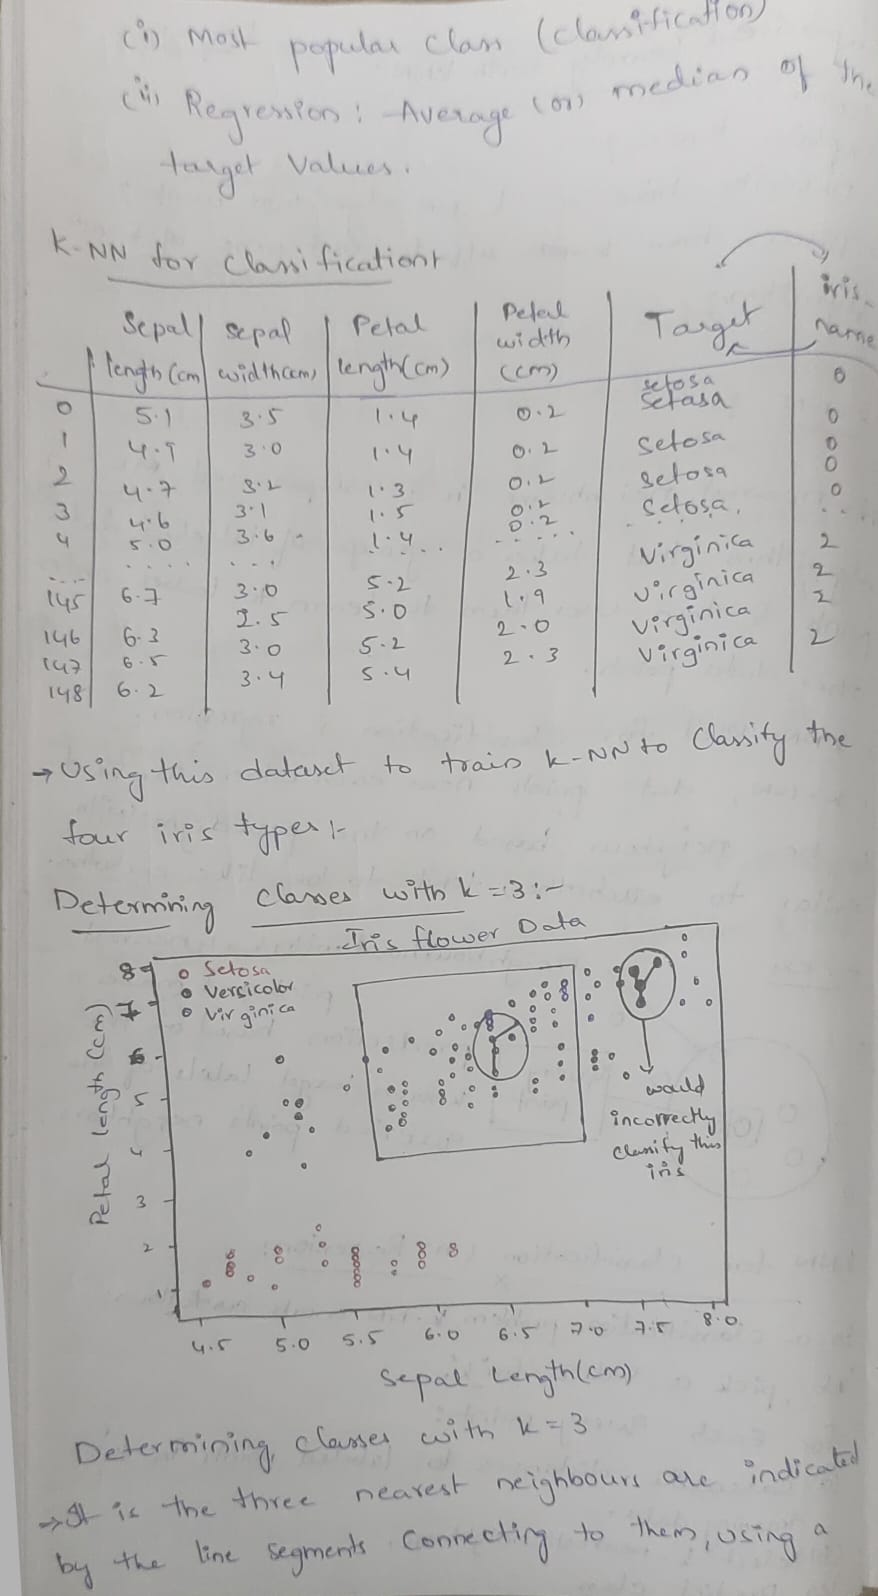 (i) Most popular class (classification)
(ii) Regression: Average (or) median of the
target values.
K-NN for classification:
Sepal length(cm) | sepal width(cm) | Petal length(cm) | Petal width (cm) | Target | iris name
0 5.1 3.5 1.4 0.2 setosa 0
setosa
1 4.9 3.0 1.4 0.2 setosa 0
2 4.7 3.2 1.3 0.2 setosa 0
3 4.6 3.1 1.5 0.2 setosa. 0
4 5.0 3.6 1.4 0.2 0
.... ..... ... .... ..... .....
145 6.7 3.0 5.2 2.3 virginica 2
146 6.3 2.5 5.0 1.9 virginica 2
147 6.5 3.0 5.2 2.0 virginica 2
148 6.2 3.4 5.4 2.3 virginica 2
→ Using this dataset to train k-NN to classify the
four iris types :-
Determining classes with k=3:-
Iris flower Data
Setosa
Versicolor
Virginica
Petal length (cm)
8
7
6
5
4
3
2
1
would
incorrectly
classify this
iris
4.5 5.0 5.5 6.0 6.5 7.0 7.5 8.0
Sepal Length(cm)
Determining classes with k=3
→ It is the three nearest neighbours are indicated
by the line segments connecting to them, using a